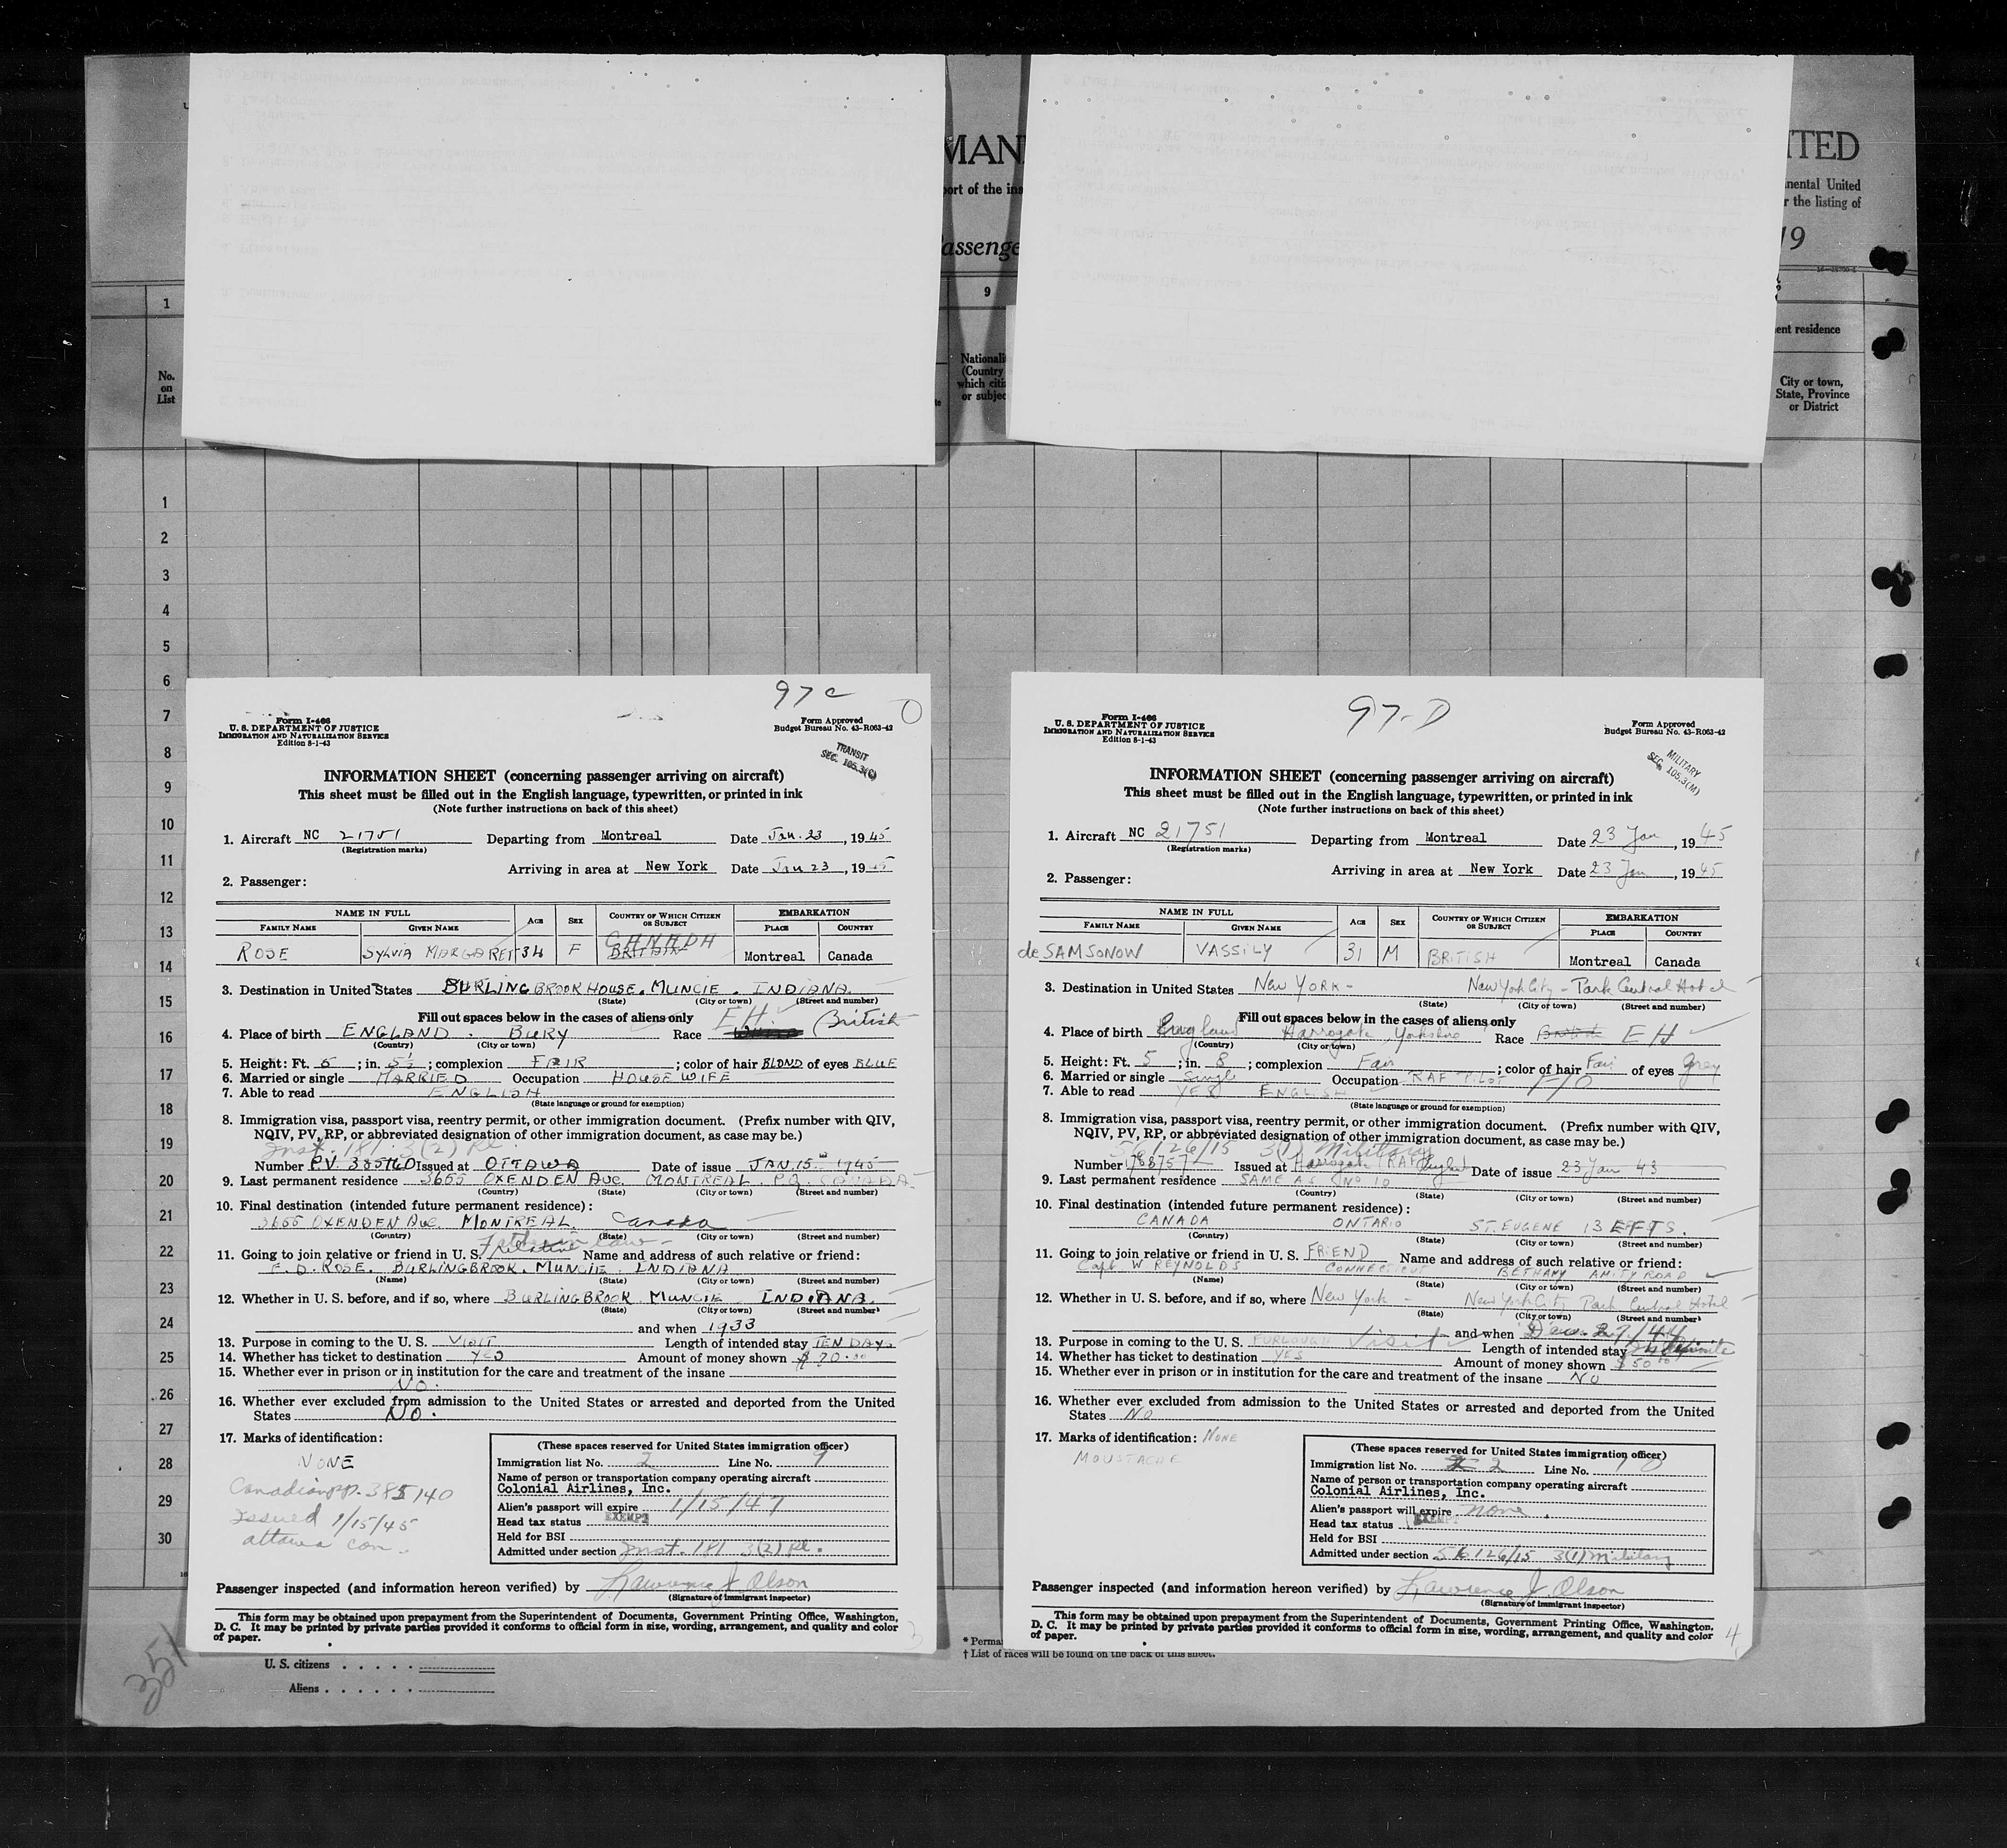 MAN
ITED
port of the ins
nental United
r the listing of
assenge
19
1
9
No.
on
List
Nationali
(Country
which citiz
or subjec
ent residence
City or town,
State, Province
or District
1
2
3
4
5
6
7
8
9
10
11
12
13
14
15
16
17
18
19
20
21
22
23
24
25
26
27
28
29
30
97 c
Form I-466
U. S. DEPARTMENT OF JUSTICE
IMMIGRATION AND NATURALIZATION SERVICE
Edition 8-1-43
Form Approved
Budget Bureau No. 43-R063-42
TRANSIT
SEC. 105.3(C)
INFORMATION SHEET (concerning passenger arriving on aircraft)
This sheet must be filled out in the English language, typewritten, or printed in ink
(Note further instructions on back of this sheet)
1. Aircraft NC 21751 Departing from Montreal Date Jan. 23, 1945
(Registration marks)
Arriving in area at New York Date Jan 23, 1945
2. Passenger:
NAME IN FULL AGE SEX COUNTRY OF WHICH CITIZEN OR SUBJECT EMBARKATION
FAMILY NAME GIVEN NAME PLACE COUNTRY
CANADA
ROSE SYLVIA MARGARET 34 F BRITAIN Montreal Canada
3. Destination in United States BURLINGBROOK HOUSE. MUNCIE. INDIANA.
(State) (City or town) (Street and number)
Fill out spaces below in the cases of aliens only
4. Place of birth ENGLAND. BURY Race EH. (British
(Country) (City or town)
5. Height: Ft. 5; in. 5½; complexion FAIR; color of hair BLOND of eyes BLUE
6. Married or single MARRIED Occupation HOUSEWIFE
7. Able to read ENGLISH
(State language or ground for exemption)
8. Immigration visa, passport visa, reentry permit, or other immigration document. (Prefix number with QIV,
NQIV, PV, RP, or abbreviated designation of other immigration document, as case may be.)
Inst. 181. 3(2) Pl.
Number P.V. 385140 Issued at OTTAWA Date of issue JAN. 15 1945
9. Last permanent residence 3655 OXENDEN AVE. MONTREAL. P.Q. CANADA
(Country) (State) (City or town) (Street and number)
10. Final destination (intended future permanent residence):
3655 OXENDEN AVE. MONTREAL. Canada
(Country) (State) (City or town) (Street and number)
Father in law
11. Going to join relative or friend in U. S. Relative Name and address of such relative or friend:
F. D. ROSE. BURLINGBROOK. MUNCIE. INDIANA
(Name) (State) (City or town) (Street and number)
12. Whether in U. S. before, and if so, where BURLINGBROOK MUNCIE INDIANA.
(State) (City or town) (Street and number)
and when 1933
13. Purpose in coming to the U. S. VISIT Length of intended stay TEN DAYS
14. Whether has ticket to destination YES Amount of money shown $ 20.00
15. Whether ever in prison or in institution for the care and treatment of the insane
NO.
16. Whether ever excluded from admission to the United States or arrested and deported from the United
States NO.
17. Marks of identification:
NONE
Canadian pp. 385140
Issued 1/15/45
Ottawa Can.
(These spaces reserved for United States immigration officer)
Immigration list No. 2 Line No. 9
Name of person or transportation company operating aircraft
Colonial Airlines, Inc.
Alien's passport will expire 1/15/47
Head tax status EXEMPT
Held for BSI
Admitted under section Inst. 181 3(2) Pl.
Passenger inspected (and information hereon verified) by Lawrence J. Olson
(Signature of immigrant inspector)
This form may be obtained upon prepayment from the Superintendent of Documents, Government Printing Office, Washington,
D. C. It may be printed by private parties provided it conforms to official form in size, wording, arrangement, and quality and color
of paper.
3
97-D
Form I-466
U. S. DEPARTMENT OF JUSTICE
IMMIGRATION AND NATURALIZATION SERVICE
Edition 8-1-43
Form Approved
Budget Bureau No. 43-R063-42
MILITARY
SEC. 105.3(M)
INFORMATION SHEET (concerning passenger arriving on aircraft)
This sheet must be filled out in the English language, typewritten, or printed in ink
(Note further instructions on back of this sheet)
1. Aircraft NC 21751 Departing from Montreal Date 23 Jan, 1945
(Registration marks)
Arriving in area at New York Date 23 Jan, 1945
2. Passenger:
NAME IN FULL AGE SEX COUNTRY OF WHICH CITIZEN OR SUBJECT EMBARKATION
FAMILY NAME GIVEN NAME PLACE COUNTRY
de SAMSONOW VASSILY 31 M BRITISH Montreal Canada
3. Destination in United States New York - New York City - Park Central Hotel
(State) (City or town) (Street and number)
Fill out spaces below in the cases of aliens only
4. Place of birth England Harrogate, Yorkshire Race British EH
(Country) (City or town)
5. Height: Ft. 5; in. 8; complexion Fair; color of hair Fair of eyes Grey
6. Married or single Single Occupation RAF PILOT F/O
7. Able to read YES ENGLISH
(State language or ground for exemption)
8. Immigration visa, passport visa, reentry permit, or other immigration document. (Prefix number with QIV,
NQIV, PV, RP, or abbreviated designation of other immigration document, as case may be.)
56126/15 3(1) Military
Number 168757 Issued at Harrogate (RAF) England Date of issue 23 Jan 43
9. Last permanent residence SAME AS NO 10
(Country) (State) (City or town) (Street and number)
10. Final destination (intended future permanent residence):
CANADA ONTARIO ST. EUGENE 13 EFTS.
(Country) (State) (City or town) (Street and number)
11. Going to join relative or friend in U. S. FRIEND Name and address of such relative or friend:
Capt W. REYNOLDS CONNECTICUT BETHANY AMITY ROAD
(Name) (State) (City or town) (Street and number)
12. Whether in U. S. before, and if so, where New York - New York City Park Central Hotel
(State) (City or town) (Street and number)
and when Dec. 27/44
13. Purpose in coming to the U. S. FURLOUGH Visit Length of intended stay
14. Whether has ticket to destination YES Amount of money shown $50.00
15. Whether ever in prison or in institution for the care and treatment of the insane NO
16. Whether ever excluded from admission to the United States or arrested and deported from the United
States NO
17. Marks of identification: NONE
MOUSTACHE
(These spaces reserved for United States immigration officer)
Immigration list No. 2 Line No. 10
Name of person or transportation company operating aircraft
Colonial Airlines, Inc.
Alien's passport will expire none.
Head tax status EXEMPT
Held for BSI
Admitted under section 56126/15 3(1) Military
Passenger inspected (and information hereon verified) by Lawrence J Olson
(Signature of immigrant inspector)
This form may be obtained upon prepayment from the Superintendent of Documents, Government Printing Office, Washington,
D. C. It may be printed by private parties provided it conforms to official form in size, wording, arrangement, and quality and color
of paper.
4
351
U. S. citizens
Aliens
* Perma
† List of races will be found on the back of this sheet.